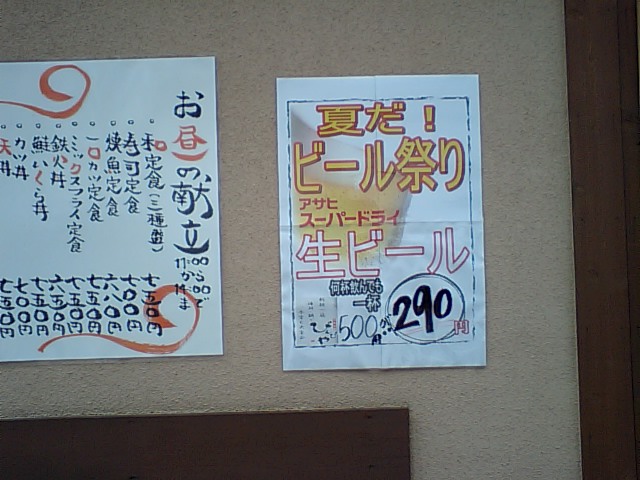 お昼の献立
11:00から14:00まで
定食(三種盛) 七五〇円
寿司定食 七〇〇円
焼魚定食 六八〇円
一口カツ定食 七五〇円
ミックスフライ定食 六五〇円
鉄火丼 七五〇円
鮭いくら丼 七五〇円
カツ丼 七五〇円
天丼
夏だ!
ビール祭り
アサヒ
スーパードライ
生ビール
何杯飲んでも
一杯
500円が
290円